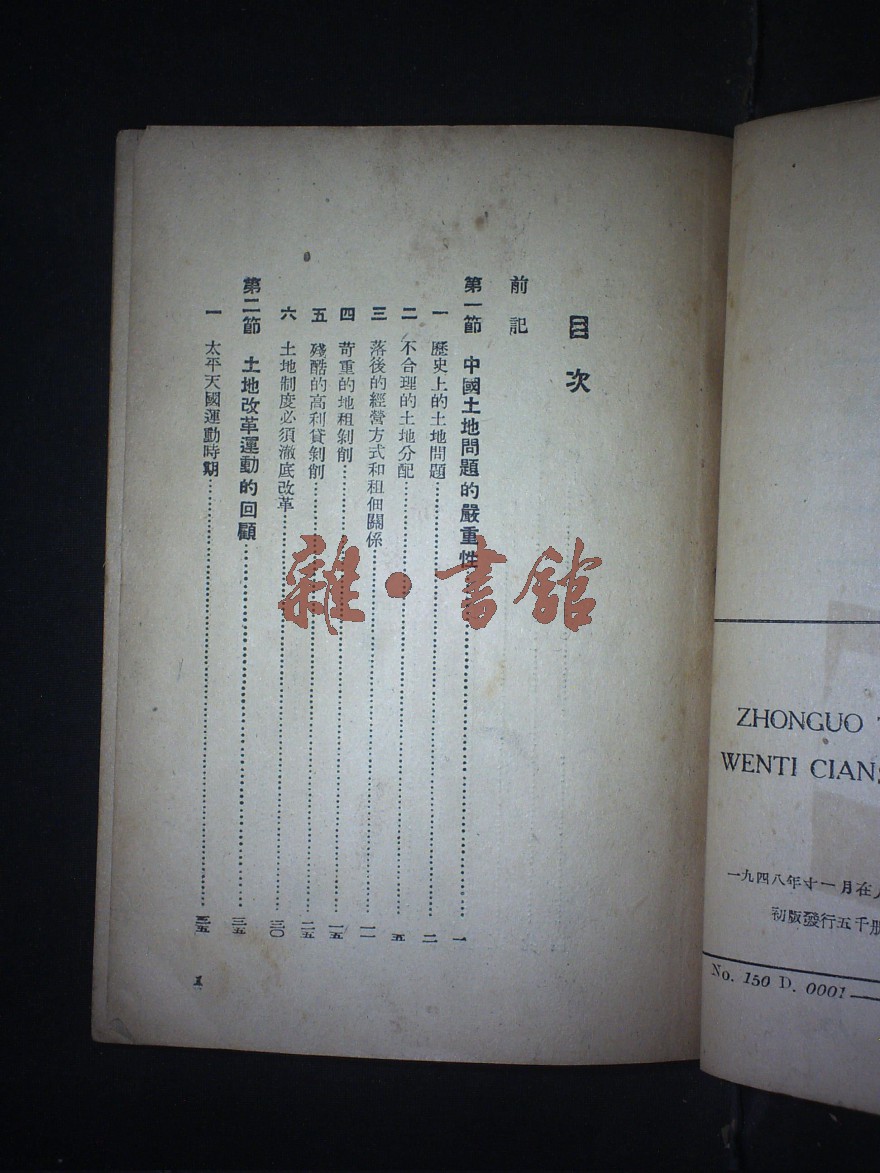 目次
前記
第一節 中國土地問題的嚴重性 一
一 歷史上的土地問題 二
二 不合理的土地分配 五
三 落後的經營方式和租佃關係 一一
四 苛重的地租剝削 一五
五 殘酷的高利貸剝削 二五
六 土地制度必須澈底改革 三〇
第二節 土地改革運動的回顧 三五
一 太平天國運動時期 三五
雜·書館
ZHONGUO
WENTI CIANS
一九四八年十一月在
初版發行五千册
No. 150 D. 0001